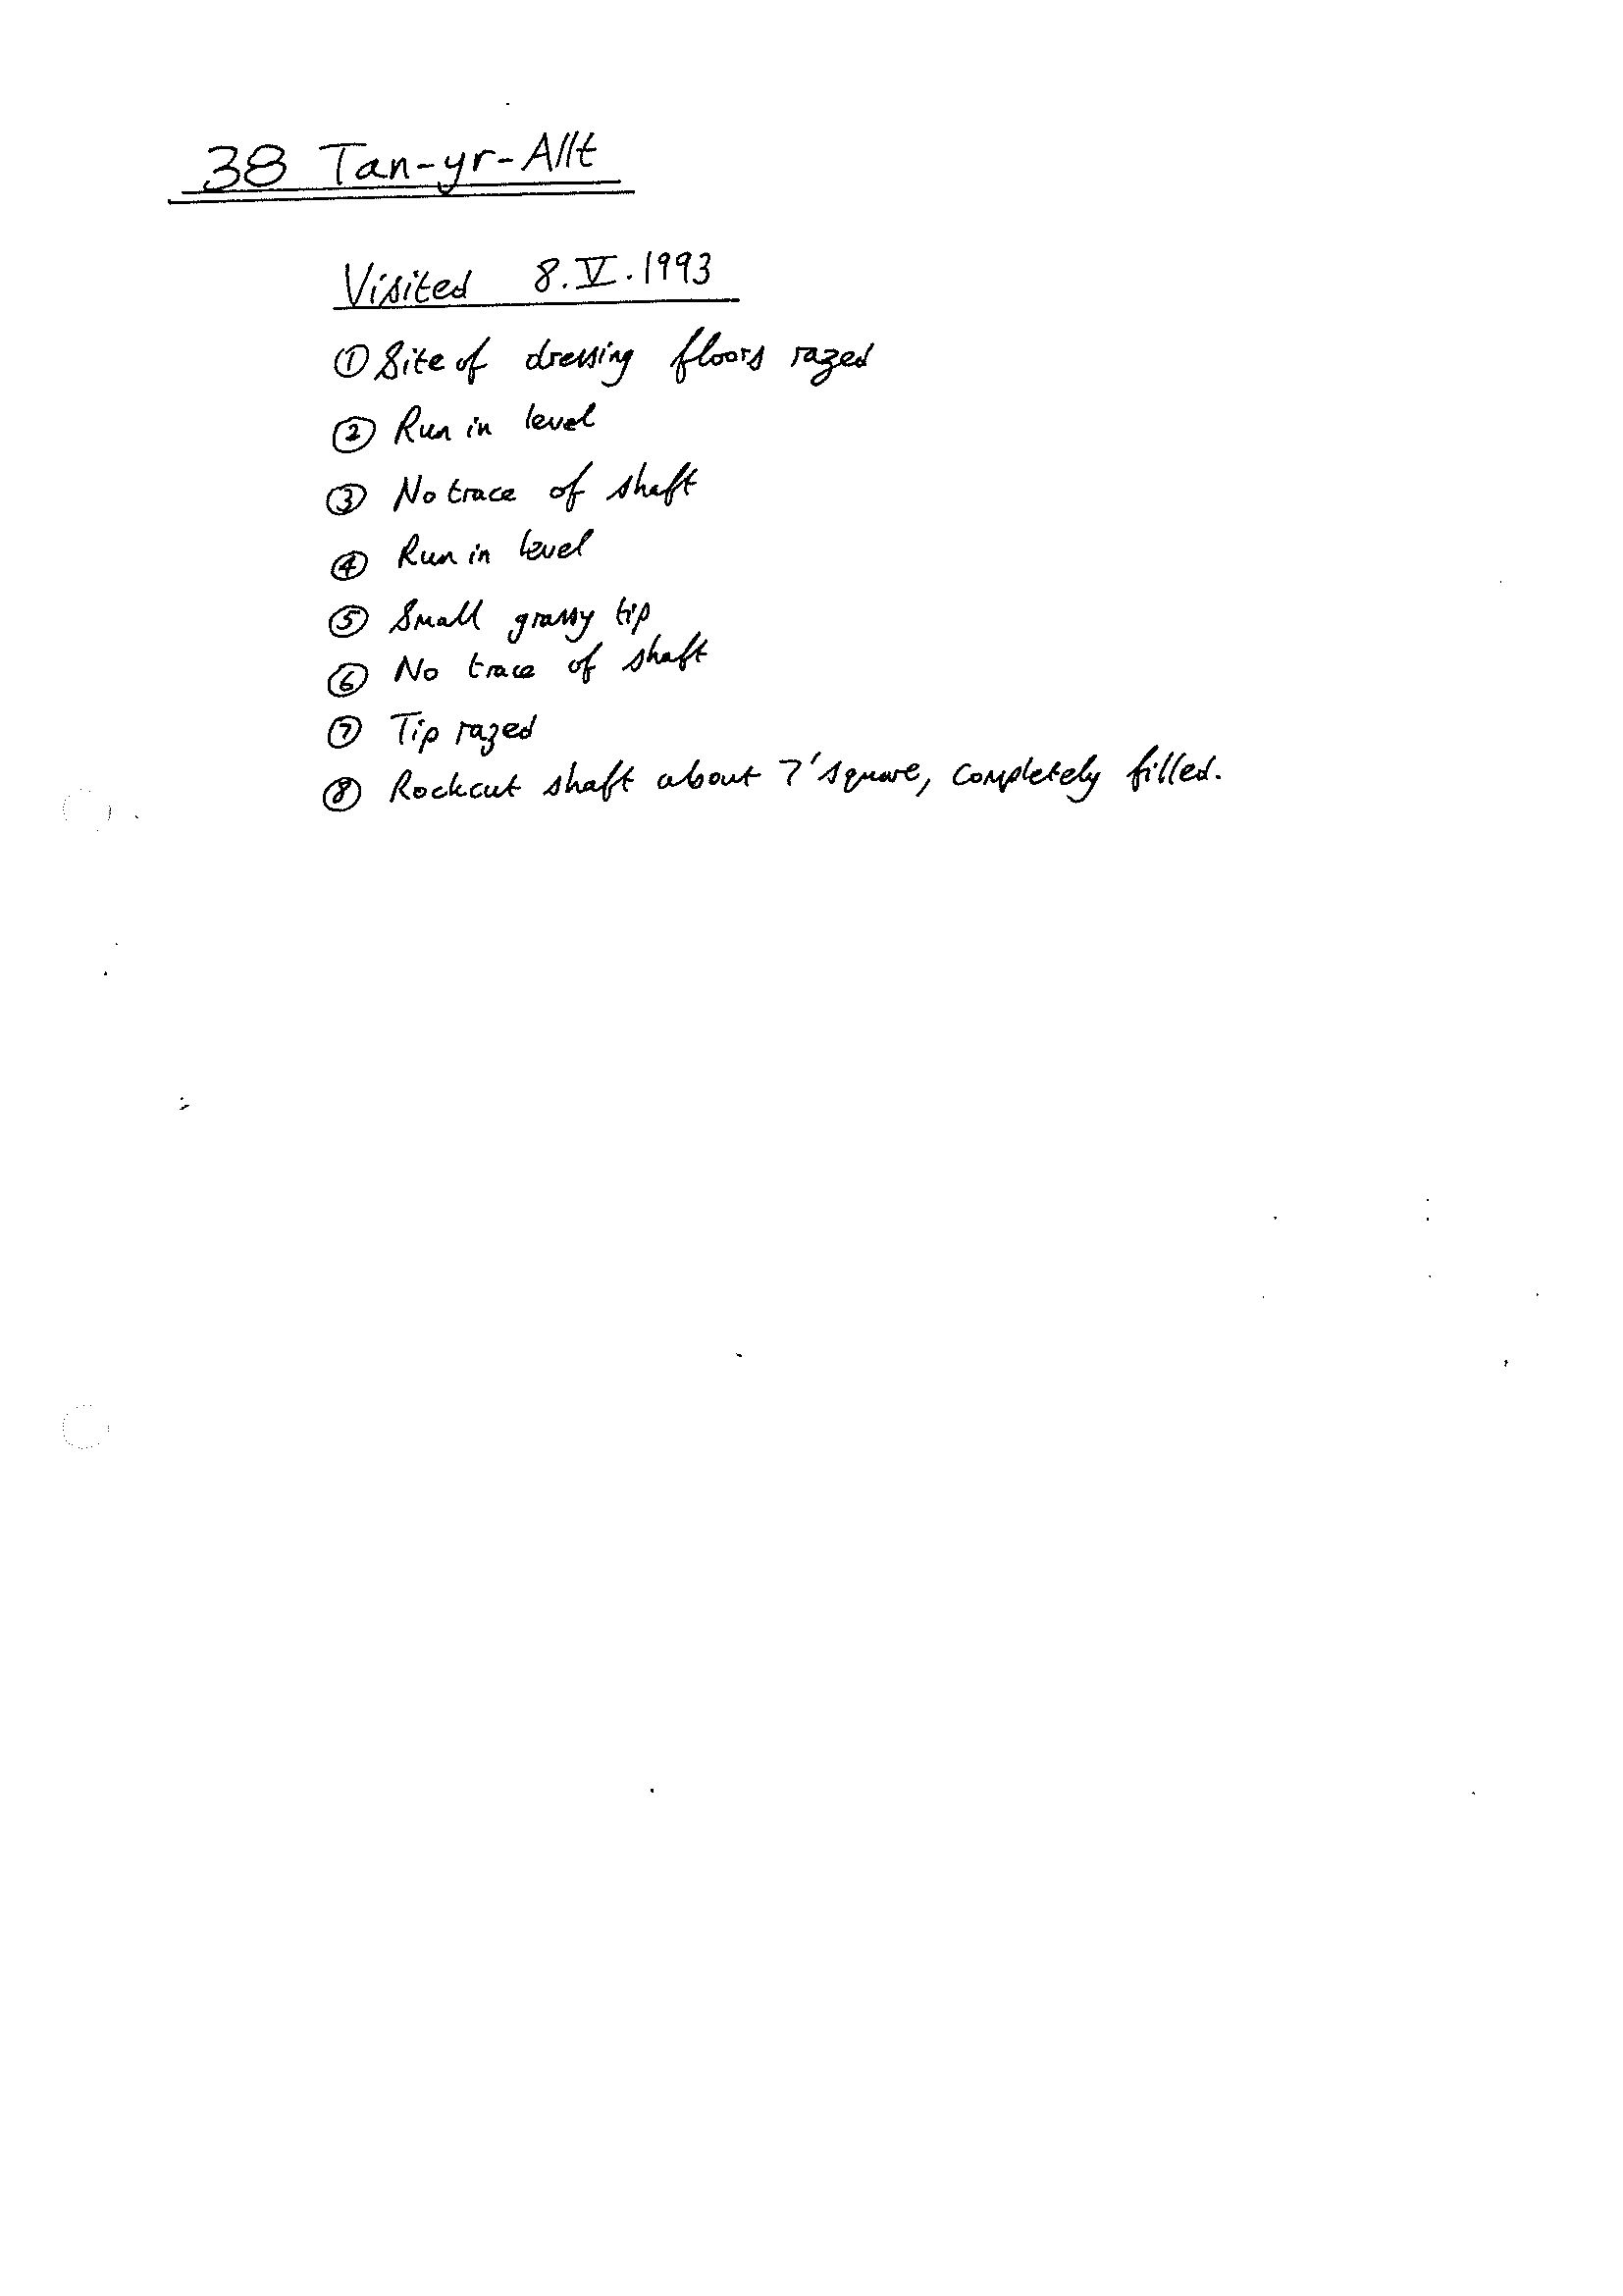 38 Tan-yr-Allt
Visited 8.V.1993
① Site of dressing floors razed
② Run in level
③ No trace of shaft
④ Run in level
⑤ Small grassy tip
⑥ No trace of shaft
⑦ Tip razed
⑧ Rockcut shaft about 7' square, completely filled.